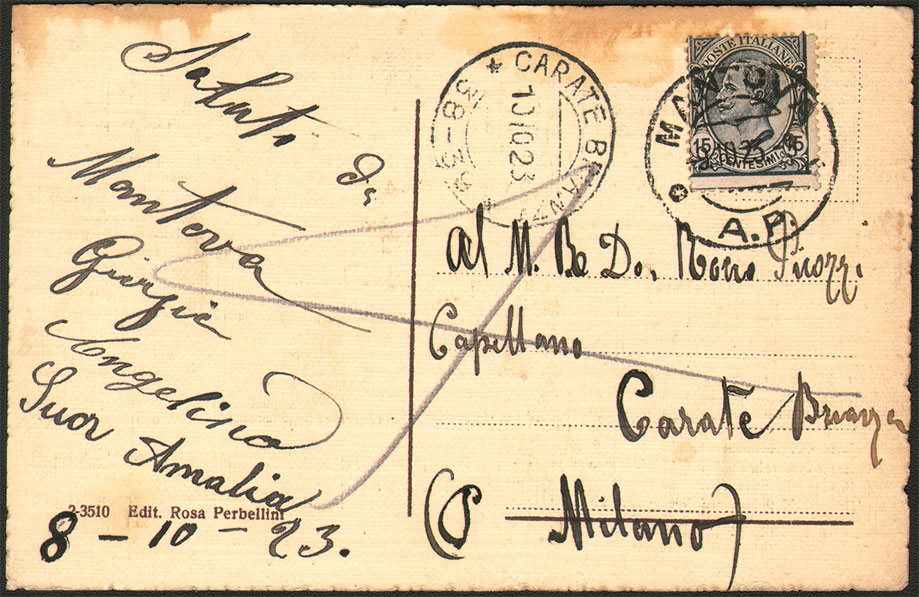 Saluti da
Mantova
Giorgio
Angelina
Suor Amalia
8 - 10 - 23.
2-3510 Edit. Rosa Perbellini
* CARATE BRIANZA *
10.10.23
38-33
POSTE ITALIANE
15 CENTESIMI 15
A.P.
Al M. Re Do.
Capellano
Carate Brianza
(Milano)